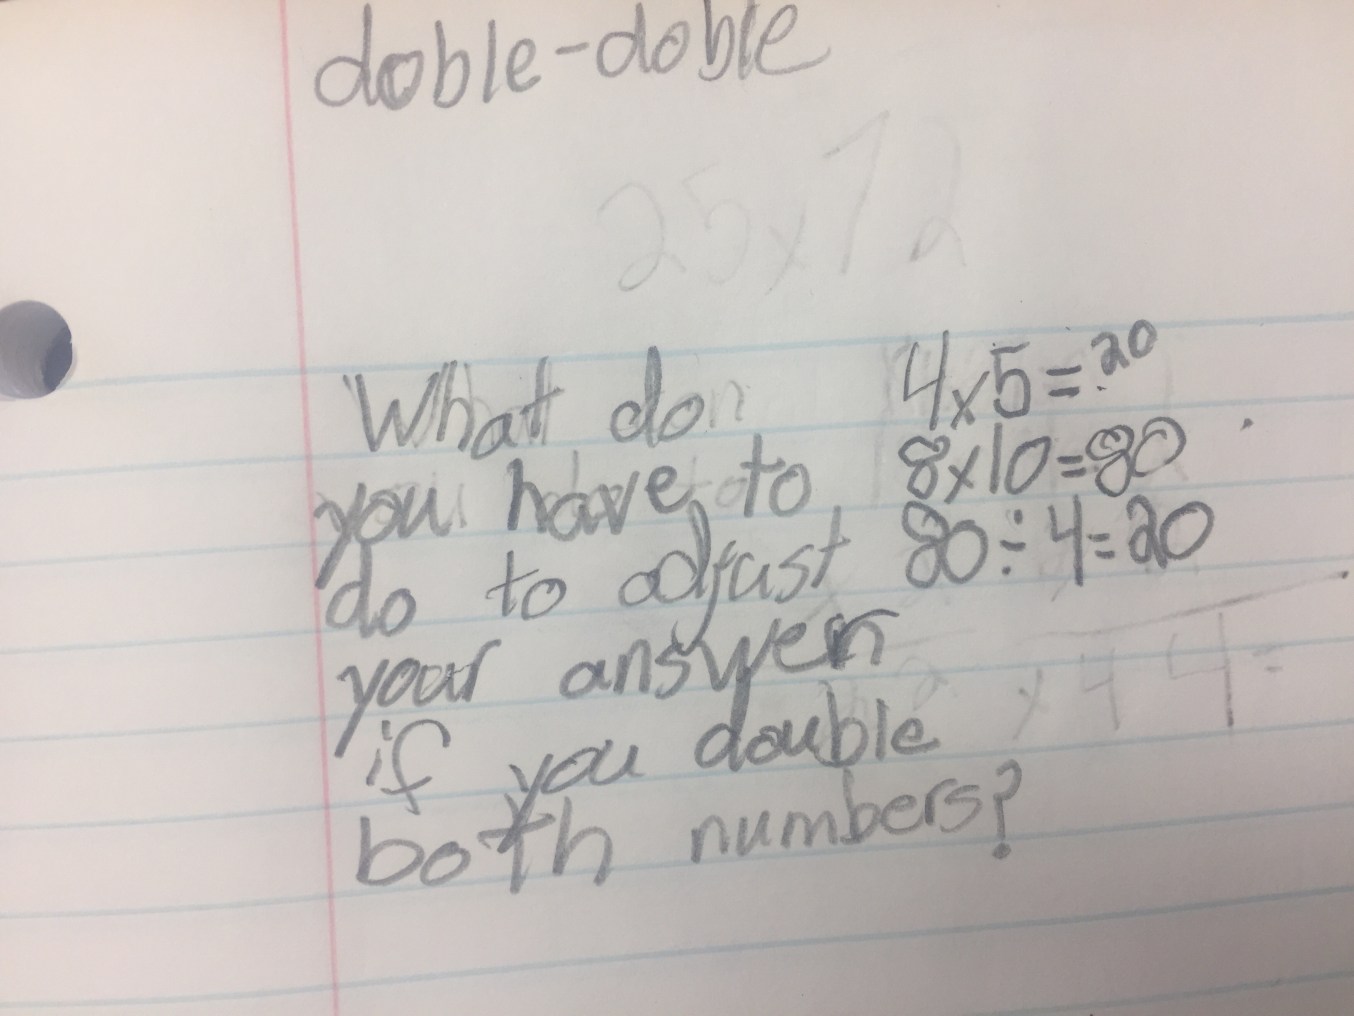 doble-doble
25x12
What do
you have to
do to adjust
your answer
if you double
both numbers?
4x5=20
8x10=80
80÷4=20